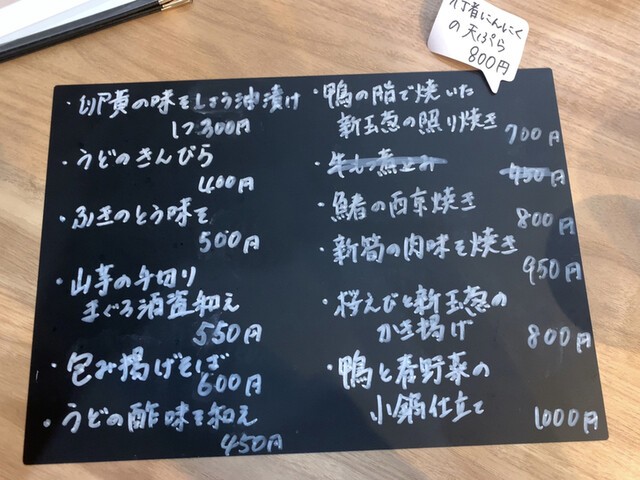 行者にんにく
の天ぷら
800円
・卵黄の味そしょう油漬け
1つ300円
・うどのきんぴら
400円
・ふきのとう味そ
500円
・山芋の千切り
まぐろ酒盗和え
550円
・包み揚げそば
600円
・うどの酢味そ和え
450円
・鴨の脂で焼いた
新玉葱の照り焼き
700円
・牛もつ煮込み
450円
・鰆の西京焼き
800円
・新筍の肉味そ焼き
950円
・桜えびと新玉葱の
かき揚げ
800円
・鴨と春野菜の
小鍋仕立て
1000円